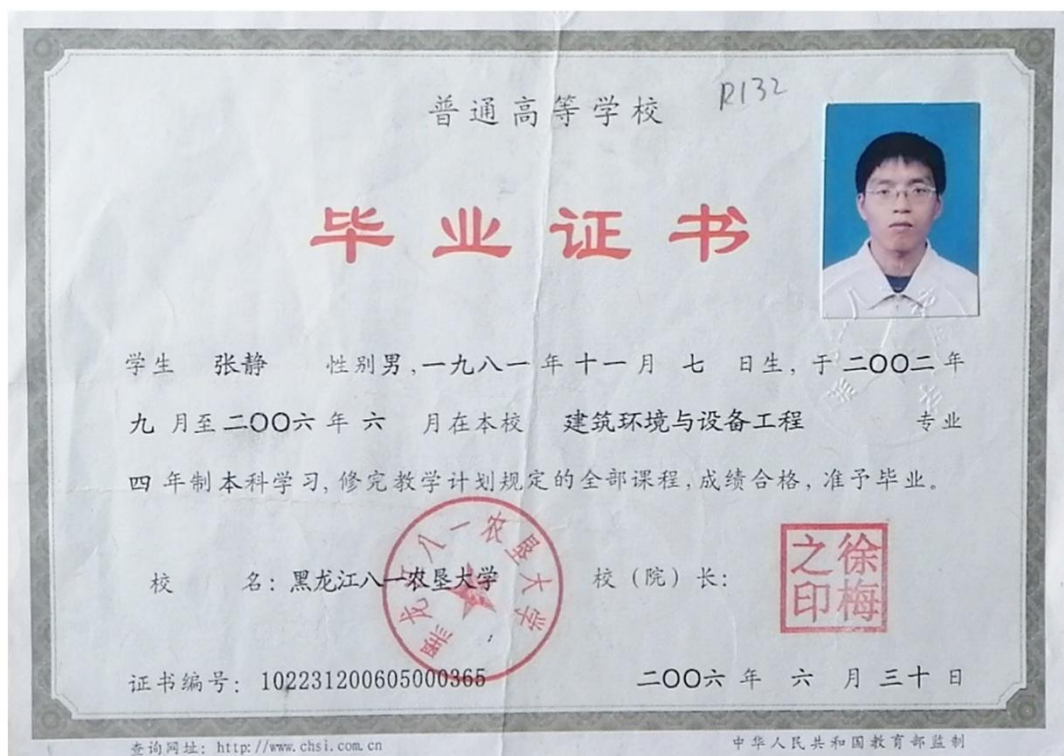 R132
普通高等学校
毕业证书
学生 张静 性别男,一九八一年十一月 七 日生,于二〇〇二年
九 月至二〇〇六年 六 月在本校 建筑环境与设备工程 专业
四 年制本科学习,修完教学计划规定的全部课程,成绩合格,准予毕业。
黑龙江八一农垦大学
校 名:黑龙江八一农垦大学 校(院)长:
徐梅之印
证书编号:102231200605000365 二〇〇六年 六 月 三十 日
查询网址:http://www.chsi.com.cn 中华人民共和国教育部监制